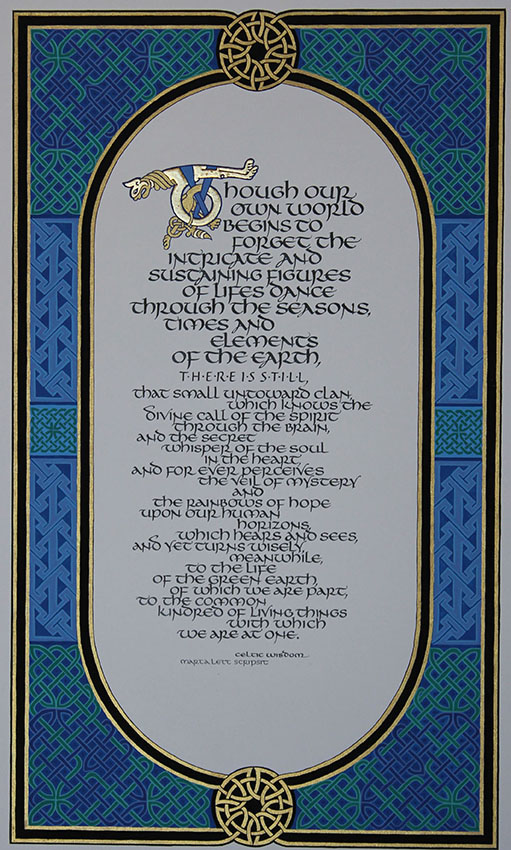 Though our
own world
begins to
forget the
intricate and
sustaining figures
of lifes dance
through the seasons,
times and
elements
of the earth,
T·H·E·R·E I·S S·T·I·L·L,
that small untoward clan,
which knows the
divine call of the spirit
through the brain,
and the secret
whisper of the soul
in the heart
and for ever perceives
the veil of mystery
and
the rainbows of hope
upon our human
horizons,
which hears and sees,
and yet turns wisely,
meanwhile,
to the life
of the green earth
of which we are part,
to the common
kindred of living things
with which
we are at one.
celtic wisdom
Marta Lett scripsit